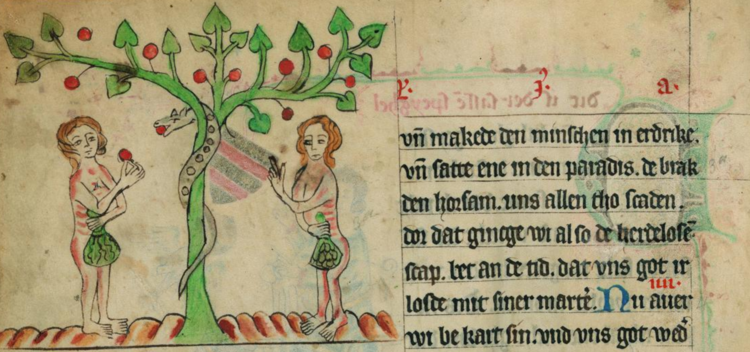 vn̄ makede den minschen in erdrike.
vn̄ satte ene in den paradis. de brak
den horsam. uns allen tho scaden.
dor dat ginege wi al so de herdelosē
scap. bet an de tid. dat vns got ir
loste mit siner martē. Nu auer
wi be kart sin. vnd vns got wed᷑